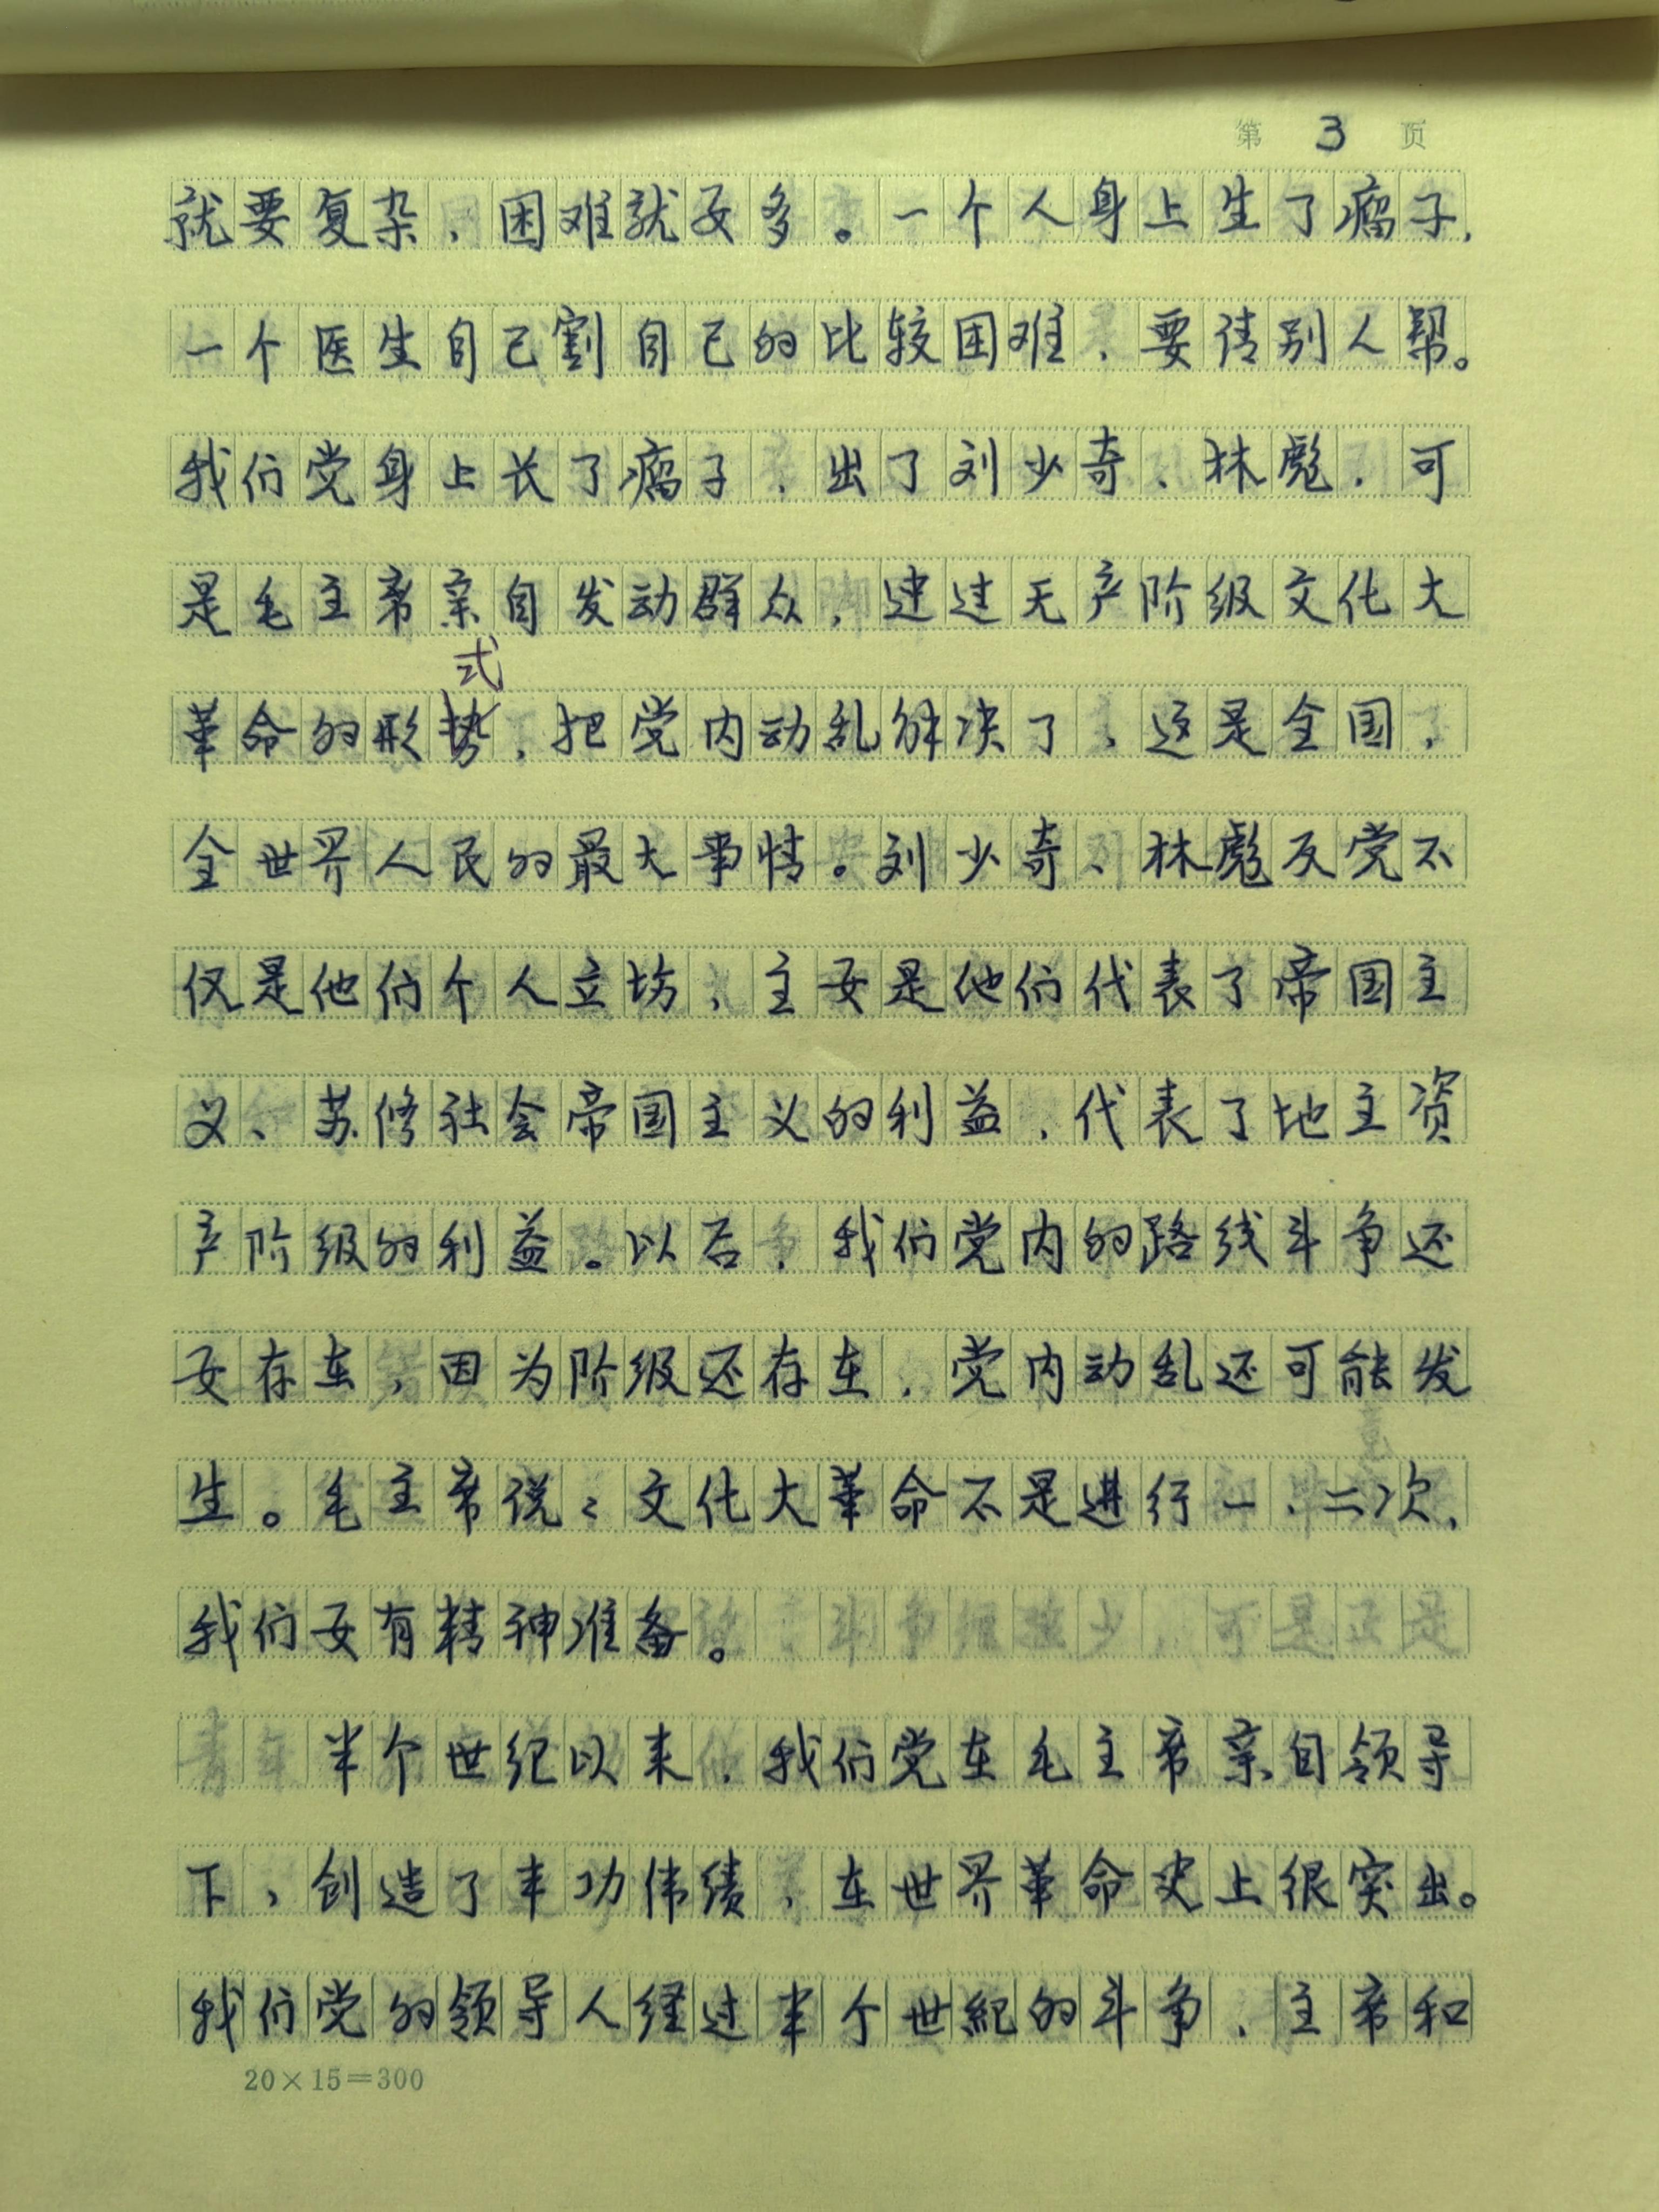 第 3 页
就要复杂，困难就要多。一个人身上生了瘤子，
一个医生自己割自己的比较困难，要请别人帮。
我们党身上长了瘤子，出了刘少奇、林彪，可
是毛主席亲自发动群众，通过无产阶级文化大
式
革命的形势，把党内动乱解决了，这是全国，
全世界人民的最大事情。刘少奇、林彪反党不
仅是他们个人立场，主要是他们代表了帝国主
义、苏修社会帝国主义的利益，代表了地主资
产阶级的利益。以后，我们党内的路线斗争还
要存在，因为阶级还存在，党内动乱还可能发
生。毛主席说：文化大革命不是进行一、二次，
我们要有精神准备。
半个世纪以来，我们党在毛主席亲自领导
下，创造了丰功伟绩，在世界革命史上很突出。
我们党的领导人经过半个世紀的斗争，主席和
20×15=300